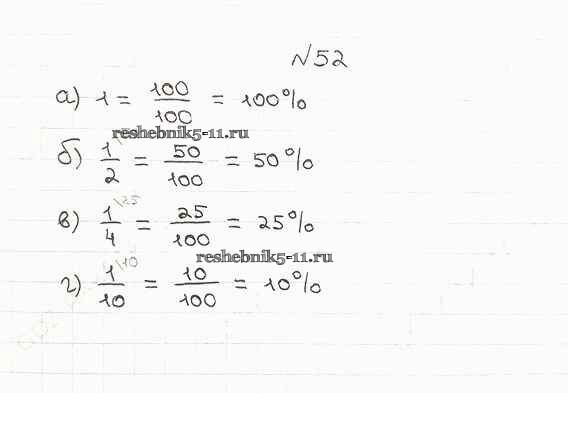 №52
а) 1 = 100/100 = 100%
reshebnik5-11.ru
б) 1/2 = 50/100 = 50%
в) 1\25/4 = 25/100 = 25%
reshebnik5-11.ru
г) 1\10/10 = 10/100 = 10%